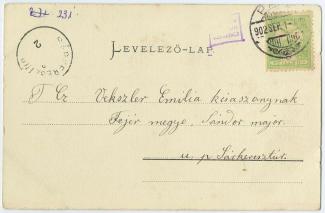 231
LEVELEZŐ-LAP
902 SEP.
T Cz Vekszler Emilia kisaszonynak
Fejér megye, Sándor major.
u. p Sárkeresztúr.